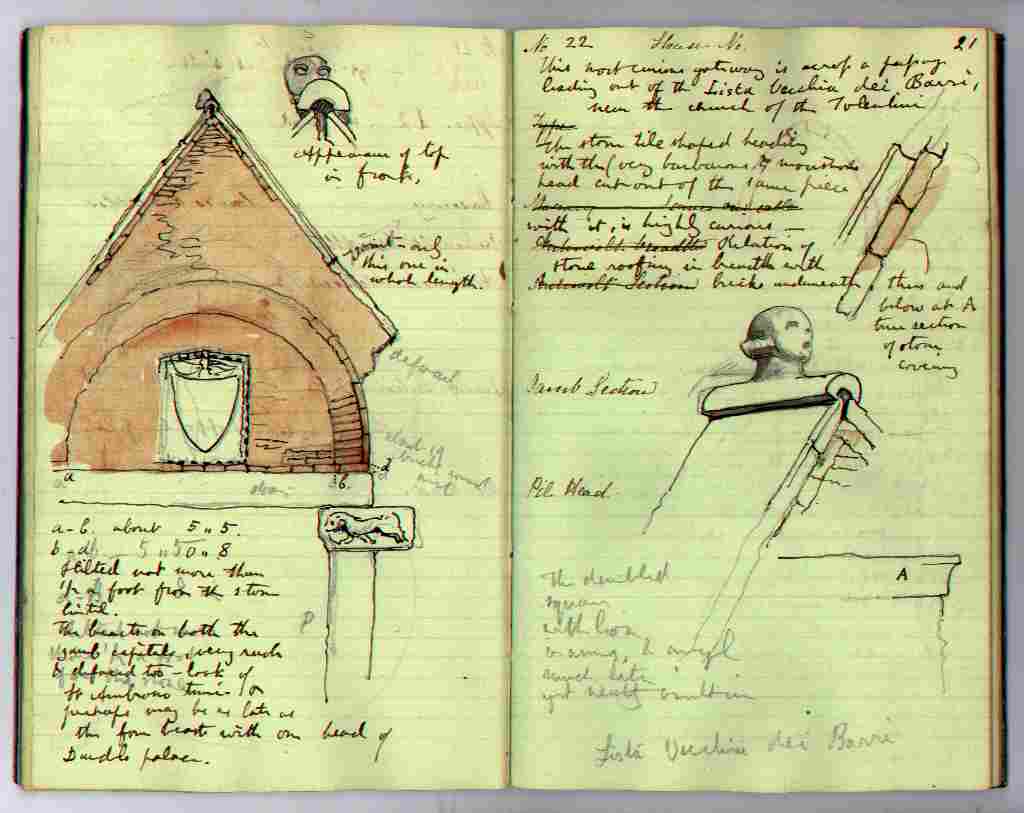 Appearance of top
in front,
joint - only
this one in
whole length.
defaced
a
b.
d
a - b. about 5 " 5.
b - d 5 " 50 " 8
Stilted not more than
1/2 a foot from the stone
lintel.
The beasts on both the
jamb capitals, very rude
& defaced too - look of
St Ambrono times or
perhaps may be as late as
the four beasts with one head of
Dandolo palace.
P
No 22 House - No. 21
This most curious gateway is across a passage
leading out of the Lista Vecchia dei Bari,
near the church of the Tolentini
Type
The stone tile shaped heading
with the (very barbarous) & monstrous
head cut out of the same piece
with it, is highly curious -
Relation of
stone roofing in breadth with
bricks underneath, thus and
below at A
true section
of stone
covering
Jamb Section
Pil. Head.
A
The dentilled
square
with
much later
yet neatly built in
Lista Vecchia dei Barri